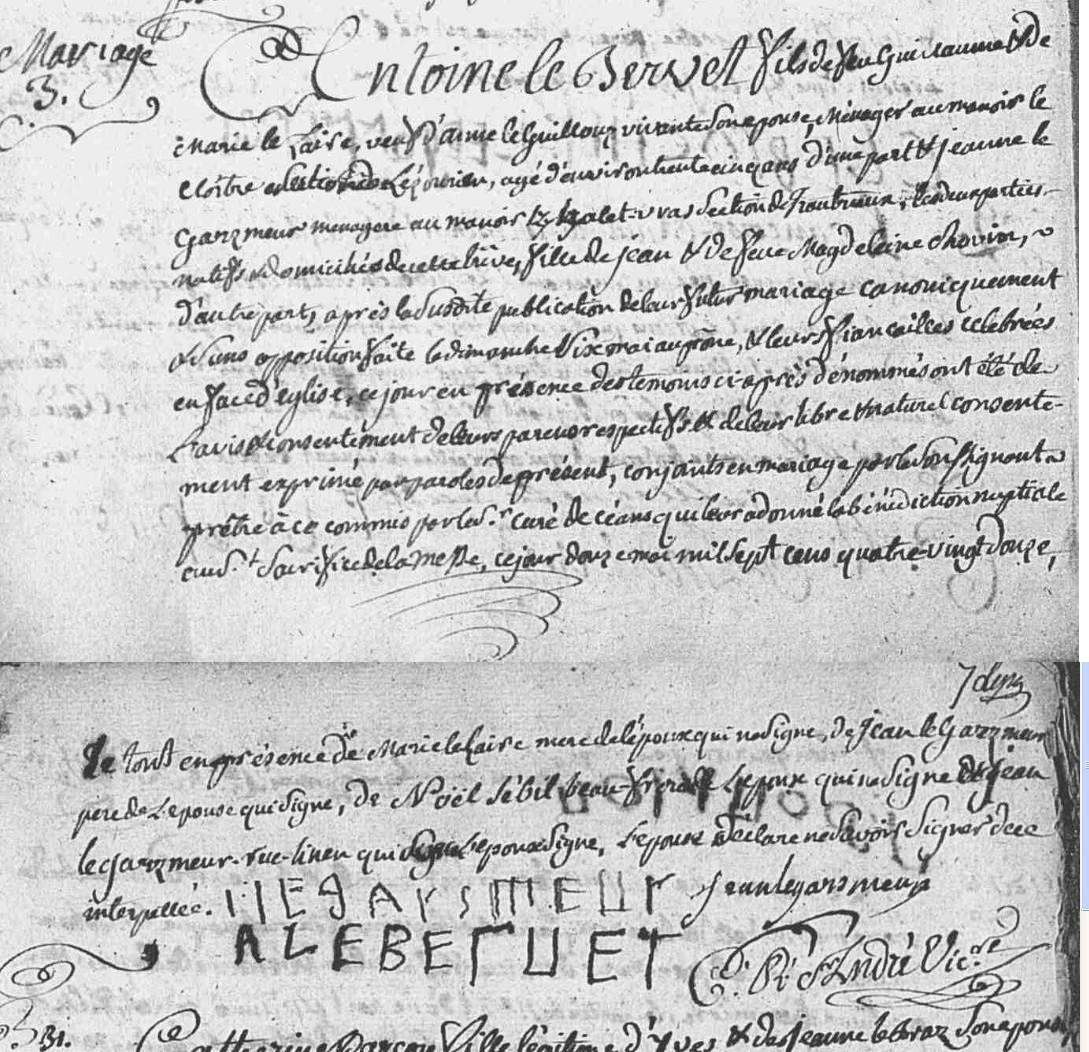 Mariage
3.
Antoine le Bervet fils de feu Guillaume & de
Marie le Faire, veuf d'anne le Guillouz vivante son epouse, Ménager au manoir le
Cloitre section de , agé d'environ trente cinq ans d'une part & jeanne le
Garzmeur menagere au manoir section de , les deux parties
natifs & domiciliés de cette trêve, fille de jean & de feue Magdeleine ,
d'autre part, après la susdite publication de leur futur mariage canoniquement
& sans opposition faite le dimanche Six mai au prône, & leurs fiancailles celebrées
en face d'église, ce jour en présence des temoins ci après dénommés ont été de
l'avis & consentement de leurs parens respectifs & de leur libre & naturel consente-
ment exprimé par paroles de présent, conjoints en mariage par le Soussignant
prêtre à ce commis par le S.r curé de céans qui leur a donné la bénédiction nuptiale
au S.t Sacrifice de la Messe, ce jour douze mai mil sept cens quatre-vingt douze,
Le tout en présence de Marie le faire mere de l'époux qui ne signe, de Jean le Garzmeur
père de L'epouse qui signe, de Noël beau-frere de L'epoux qui ne signe & de jean
le garzmeur qui signe L'epoux signe, L'epouse déclare ne savoir signer de ce
interpellée. IIEGARSMEUR jean legarsmeur
ALEBERUET André Vic.re
31.
Catherine fille légitime d'Yves & de jeanne le braz son epouse